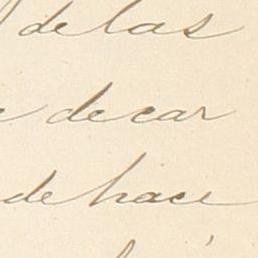 de las
de car
de hace